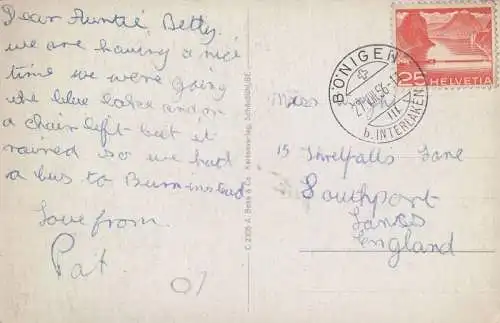 Dear Auntie Betty
we are having a nice
time we were going
the blue lake and on
a chair lift but it
rained so we had
a bus to Bern instead
love from
Pat
07
C 2305 A. Boss & Co. Kartenverlag, Schönbühl-BE.
25 HELVETIA
BÖNIGEN
b. INTERLAKEN
Miss
15 Threlfalls Lane
Southport
Lancs
England